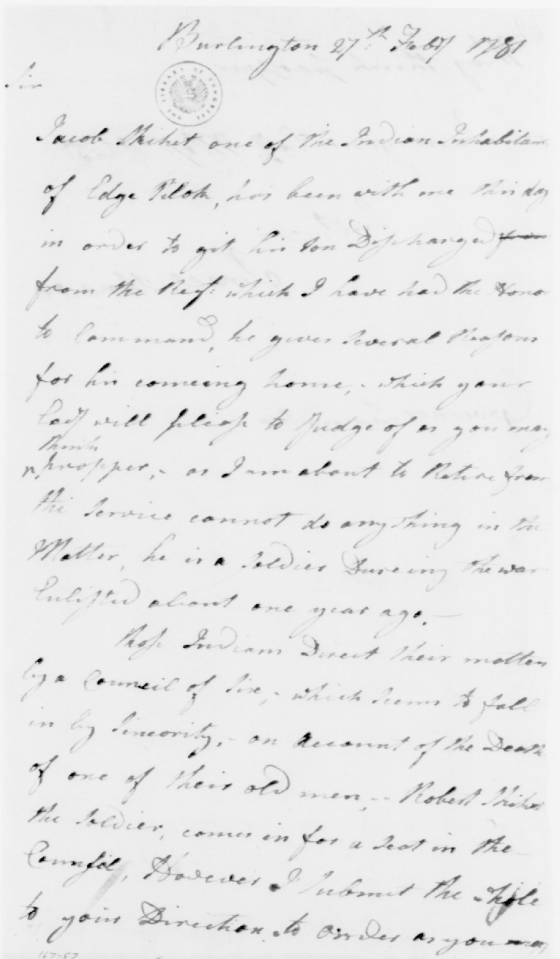 Burlington 27th Feby 1781
Sir
Jacob Skiket one of the Indian Inhabitan
of Edge Pilok, has been with me this day
in order to git his son Discharged from
from the Regt which I have had the Hono
to Command, he gives several Reasons
for his comeing home, - which your
Excy will please to Judge of as you may
think
propper, - as I am about to Retire from
the Service cannot do anything in the
Matter, he is a Soldier Dureing the war
Enlisted about one year ago, -
Those Indians Direct their matters
by a Council of Six, - which seems to fall
in by Sineority, - on account of the Death
of one of their old men, - Robert Skiket
the Soldier, comes in for a Seat in the
Council, However I Submit the whole
to your Direction to order as you may
LIBRARY OF CONGRESS